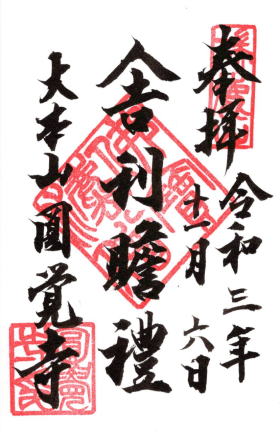 奉拝
令和三年
十一月六日
舎利瞻禮
大本山圓覚寺